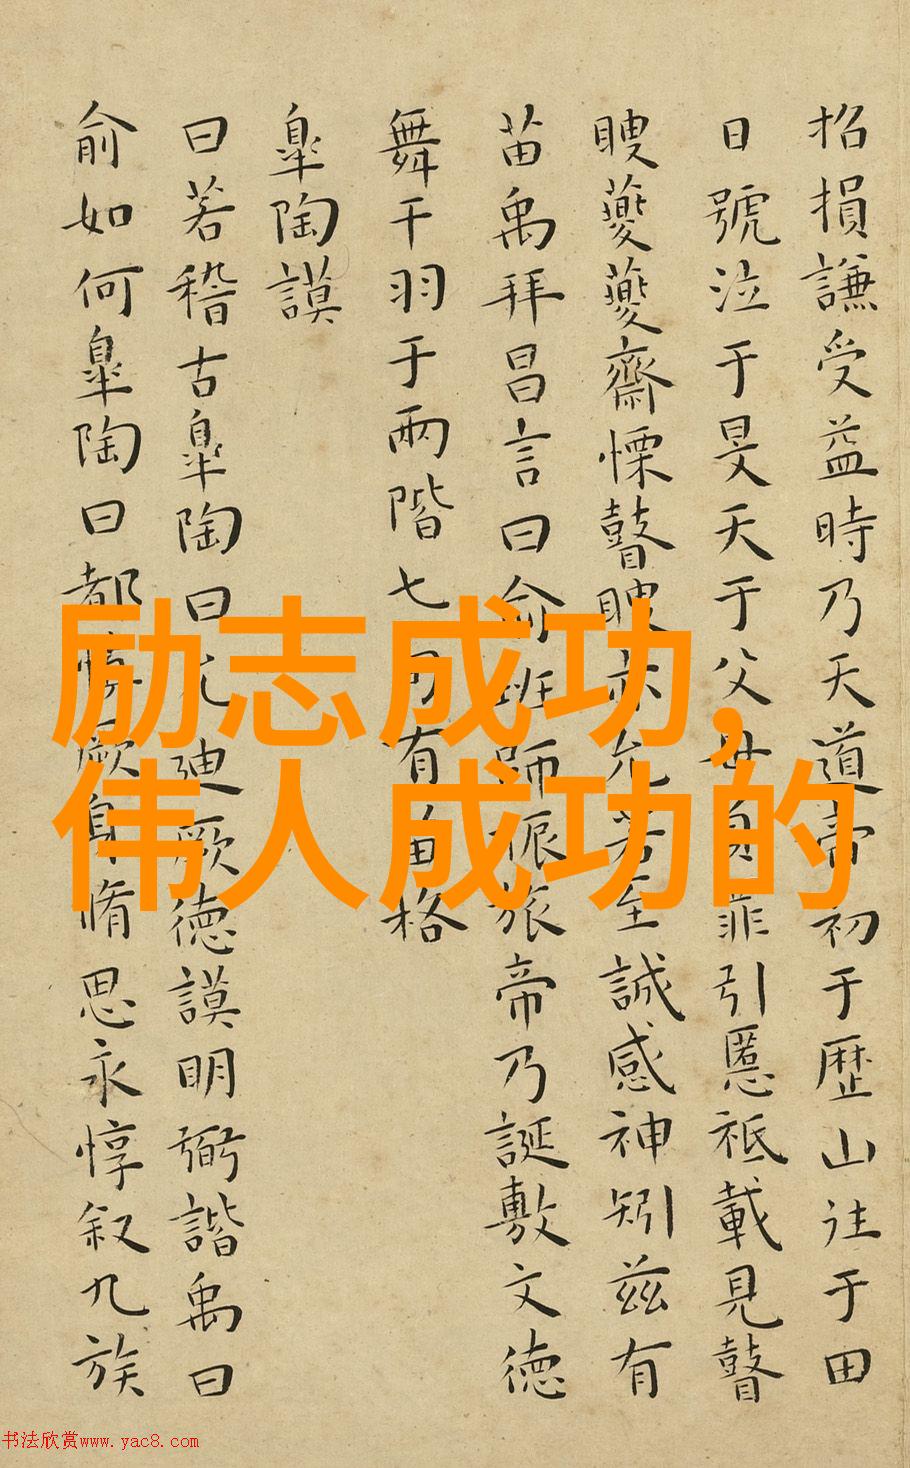 招損謙受益時乃天道帝初于歷山往于田
日號泣于旻天于父母負罪引慝祗載見瞽
瞍夔夔齋慄瞽瞍亦允若至誠感神矧茲有
苗禹拜昌言曰俞班師振旅帝乃誕敷文德
舞干羽于兩階七旬有苗格
皐陶謨
曰若稽古皐陶曰允迪厥德謨明弼諧禹曰
俞如何皐陶曰都慎厥身脩思永惇叙九族
励志成功,
伟人成功的
书法欣赏www.yac8.com